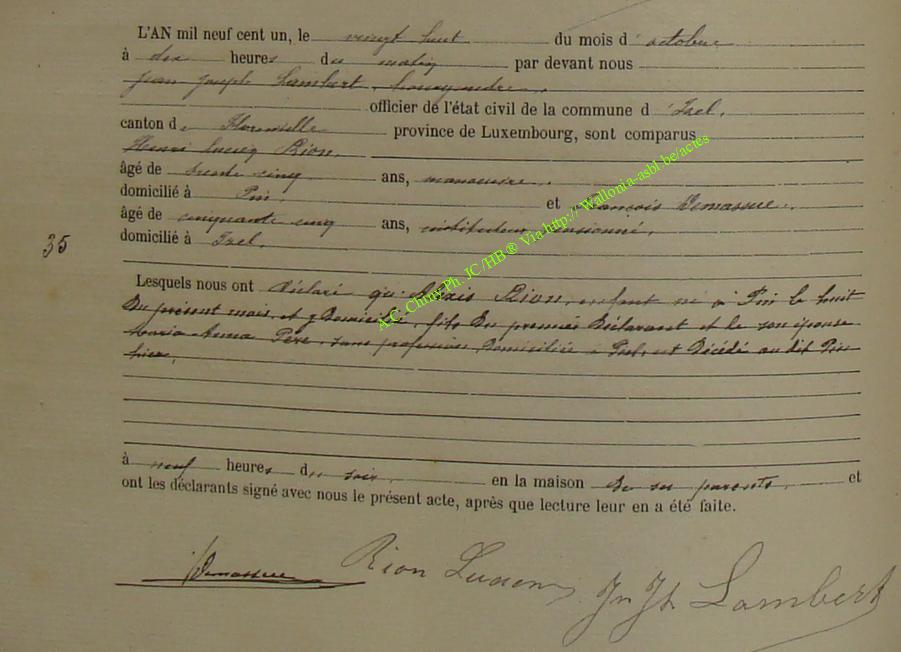 L'AN mil neuf cent un, le vingt huit du mois d'octobre
à dix heures du matin par devant nous
Jean Joseph Lambert, bourgmestre.
officier de l'état civil de la commune d'Izel,
canton de Florenville province de Luxembourg, sont comparus
Henri Lucien Rion,
âgé de trente cinq ans, manoeuvre.
domicilié à Pin. et François Demasure.
âgé de cinquante cinq ans, instituteur pensionné.
35
domicilié à Izel.
Lesquels nous ont déclaré qu'Alexis Rion, enfant né à Pin le huit
du présent mois, et y domicilié, fils du premier déclarant et de son épouse
Maria Anna Père, sans profession, domiciliée à Pin, est décédé au dit Pin
hier,
à neuf heures du soir. en la maison de ses parents, et
ont les déclarants signé avec nous le présent acte, après que lecture leur en a été faite.
Demasure Rion Lucien Jn Jh Lambert
A.C. Chiny Ph. JC/HB ® Via http://Wallonia-asbl.be/actes